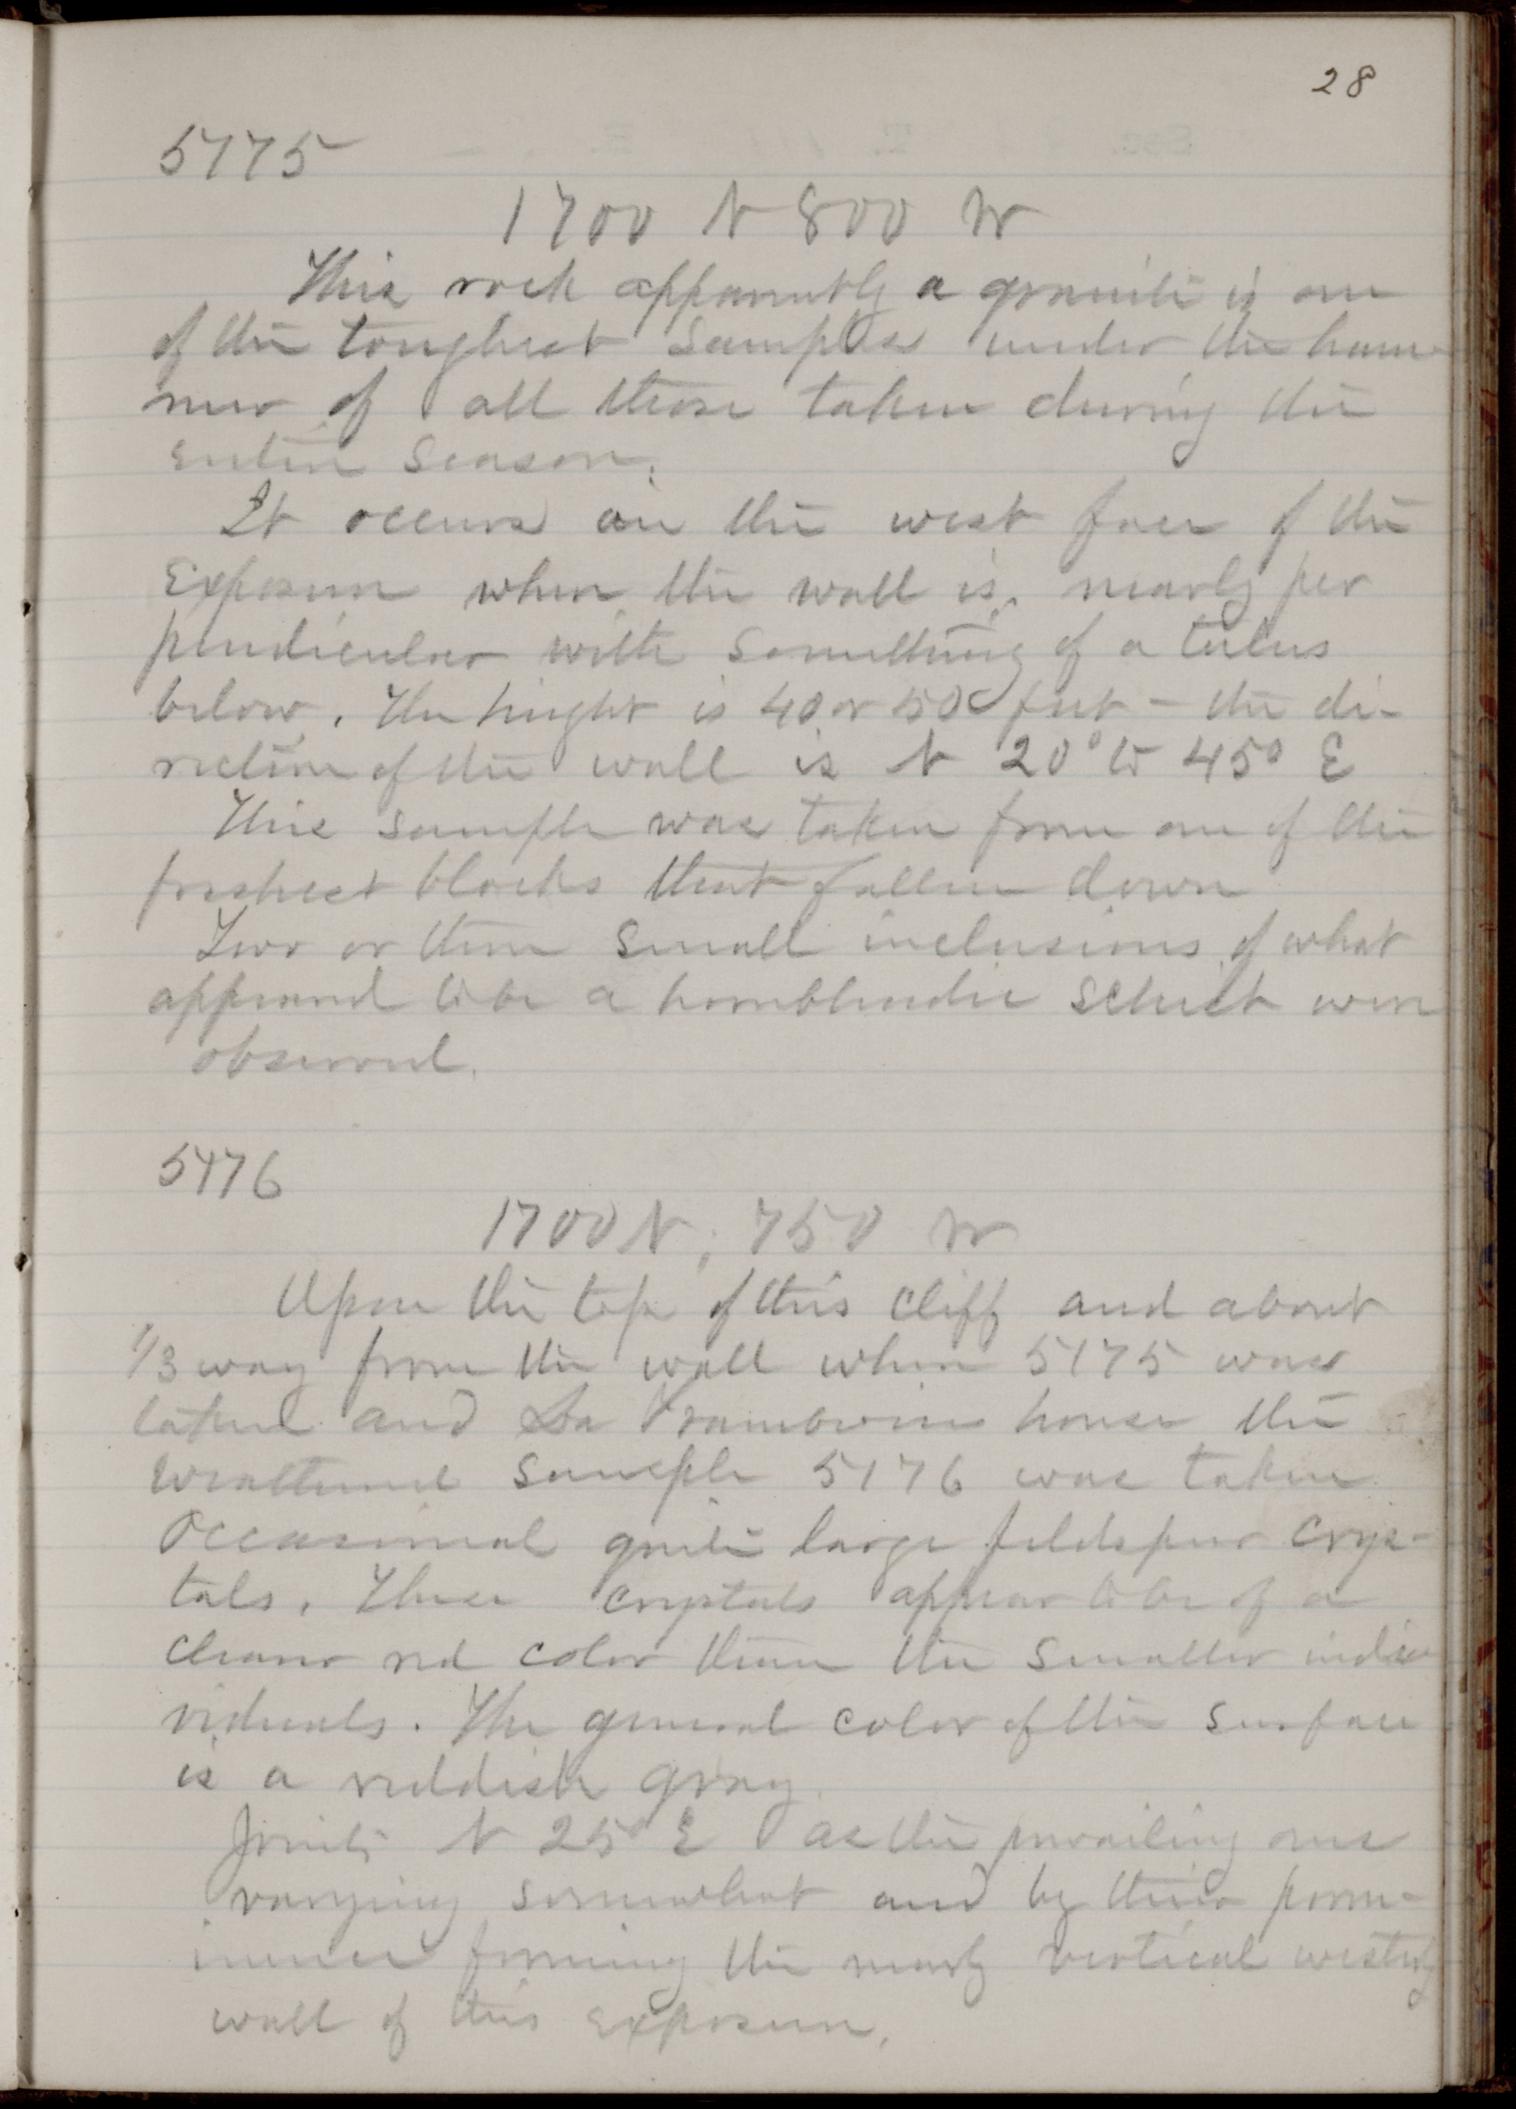 28
5175
1700 N 800 W
This rock apparently a granite is one
of the toughest samples under the ham
mer of all those taken during the
entire season.
It occurs on the west face of the
Exposure where the wall is nearly per
pendicular with something of a talus
below. The height is 40 or 50 feet - the di-
rection of the wall is N 20° to 45° E
This sample was taken from one of the
freshest blocks that fallen down
Two or three small inclusions of what
appeared to be a hornblendic schist were
observed.
5176
1700 N, 750 W
Upon the top of this cliff and about
1/3 way from the wall where 5175 was
taken and house the
weathered sample 5176 was taken
Occasional quite large feldspar crys-
tals. These crystals appear to be of a
cleaner red color than the smaller indi
viduals. The general color of the surface
is a reddish gray
Joints N 25° E as the prevailing one
varying somewhat and by their prom-
inence forming the nearly vertical westerly
wall of this exposure.